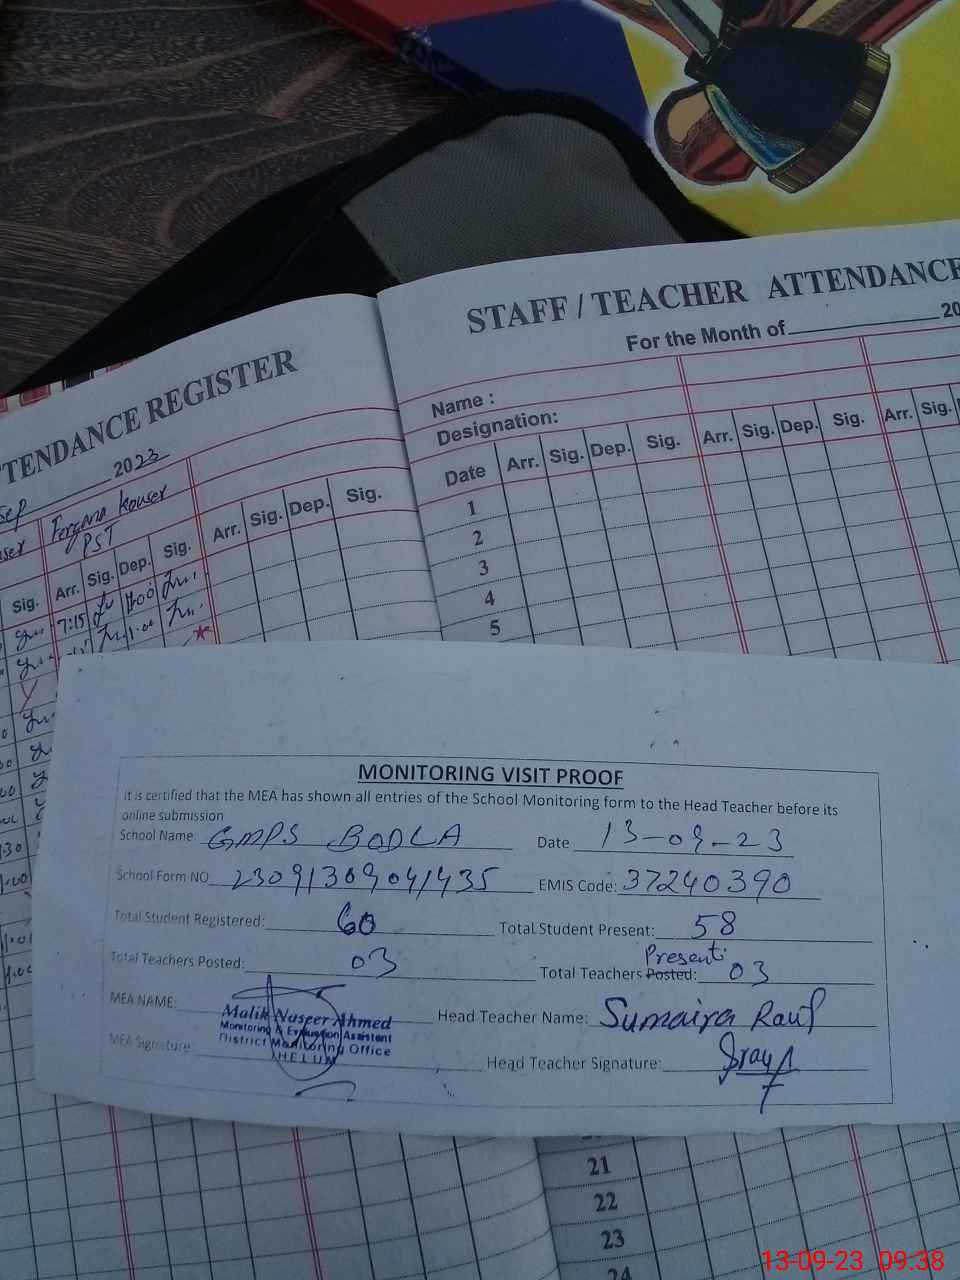 STAFF / TEACHER ATTENDANCE
For the Month of 20
Name :
Designation:
Date Arr. Sig. Dep. Sig. Arr. Sig. Dep. Sig. Arr. Sig.
1
2
3
4
5
TENDANCE REGISTER
Sep 2023
Farzana Kouser
PST
Sig. Arr. Sig. Dep. Sig. Arr. Sig. Dep. Sig.
7:15
1:00
MONITORING VISIT PROOF
It is certified that the MEA has shown all entries of the School Monitoring form to the Head Teacher before its
online submission
School Name GMPS BODLA Date 13-09-23
School Form NO 230913090411435 EMIS Code: 37240390
Total Student Registered: 60 Total Student Present: 58
Present
Total Teachers Posted: 03 Total Teachers Posted: 03
MEA NAME: Head Teacher Name: Sumaira Rauf
Malik Naseer Ahmed
Monitoring & Evaluation Assistant
District Monitoring Office
JHELUM
MEA Signature: Head Teacher Signature:
21
22
23
24
13-09-23 09:38